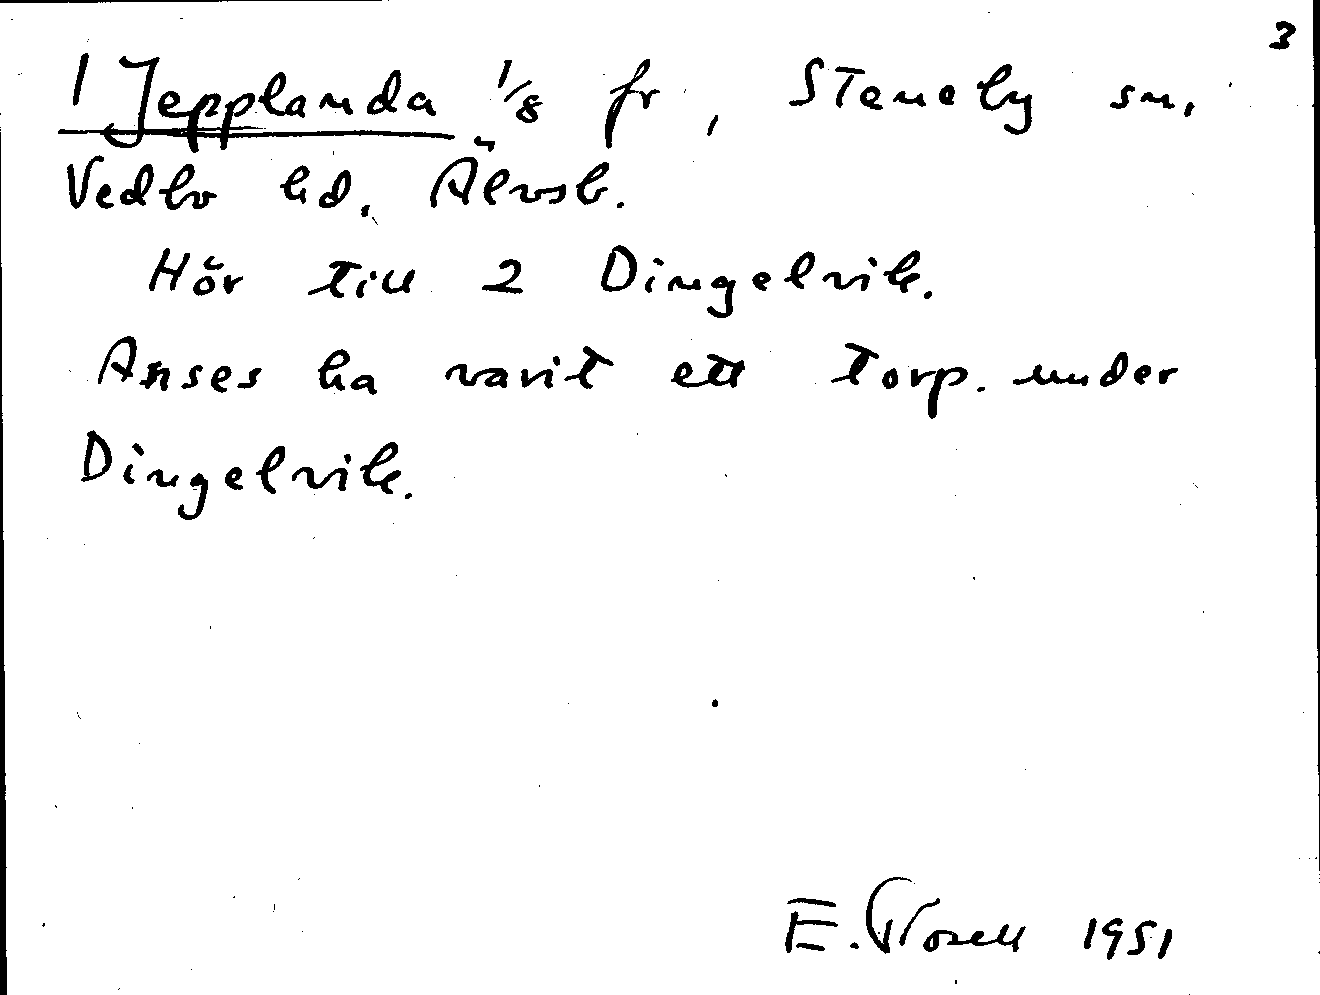 3
1 Jepplanda 1/8 fr, Steneby sn.
Vedbo hd. Älvsb.
Hör till 2 Dingelvik.
Anses ha varit ett torp. under
Dingelvik.
E. 1951